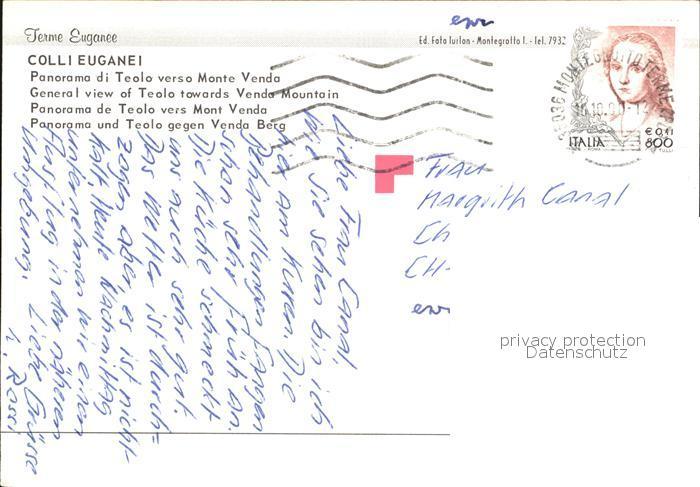 Terme Euganee
COLLI EUGANEI
Panorama di Teolo verso Monte Venda
General view of Teolo towards Venda Mountain
Panorama de Teolo vers Mont Venda
Panorama und Teolo gegen Venda Berg
Ed. Foto Turlon - Montegrotto T. - Tel. 7932
ITALIA
€ 0,41
800
ROMA
Liebe Frau Canal
Wie Sie sehen bin ich
hie am Kuren. Die
Behandlungen fangen
schon sehr früh an.
Die Küche schmeckt
uns auch sehr gut.
Das Wetter ist durch=
zogen aber, es ist nicht
kalt. Heute Nachmittag
unternehmen wir einen
Ausflug in der näheren
Umgebung. Liebe Grüsse
Rossi
Frau
Margrith Canal
CH-
privacy protection
Datenschutz